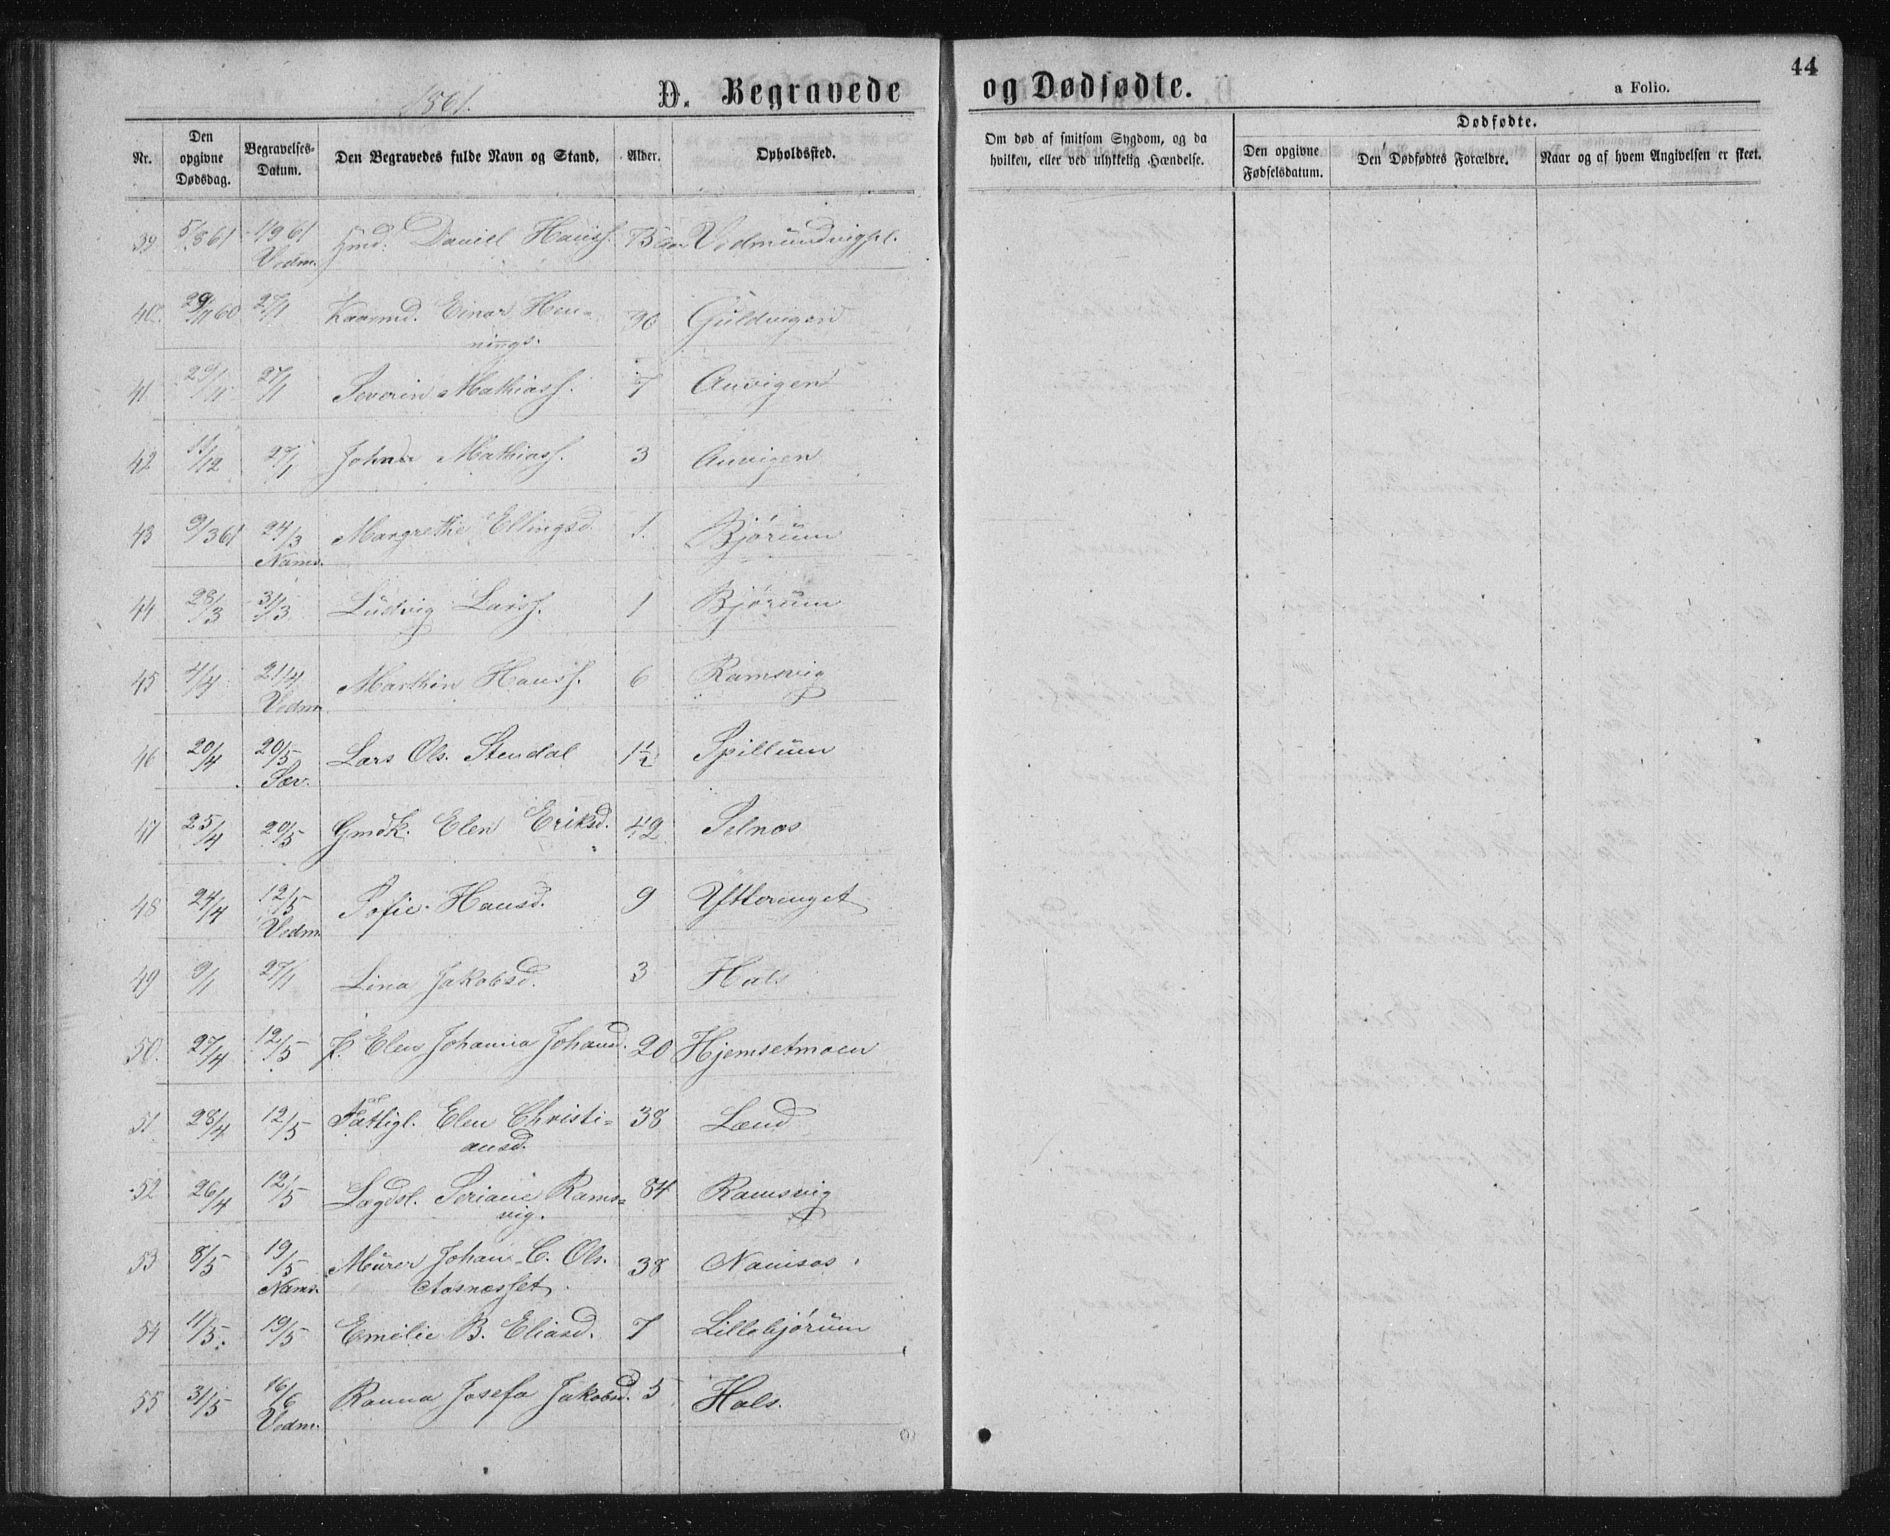 1861.
D. Begravede
og Dødfødte.
44
a Folio.
Nr.
Den opgivne Dødsdag.
Begravelses-Datum.
Den Begravedes fulde Navn og Stand.
Alder.
Opholdssted.
Om død af smitsom Sygdom, og da hvilken, eller ved ulykkelig Hændelse.
Dødfødte.
Den opgivne Fødselsdatum.
Den Dødfødtes Forældre.
Naar og af hvem Angivelsen er skeet.
39 61 Vedm. Daniel Hanss. Vedmundvigpl.
40 29/11 60 27/1 Kaarmd. Einar Hen=
nings. 90 Guldvigen
41 29/11 27/1 Severin Mathiass. 7 Auvigen
42 11/12 27/1 Johan Mathiass. 3 Auvigen
43 9/3 61 24/3 Margrethe Ellingsd. 1. Bjørum
Nams.
44 28/3 31/3 Ludvig Larss. 1 Bjørum
45 4/4 21/4 Marthin Hanss. 6 Ramsvig
Vedm.
46 20/4 20/5 Lars Ols. Stendal 1 1/2 Spillum
Sæv.
47 25/4 20/5 Gmdk. Elen Eriksd. 42 Selnæs
48 24/4 12/5 Sofie Hansd. 9 Ytterenget
Vedm.
49 9/1 27/1 Lina Jakobsd. 3 Hals
50. 27/4 12/5 P. Elen Johanna Johansd. 20 Hjemsetmoen
51 28/4 12/5 Fattigl. Elen Christi=
ansd. 38 Lænd
52 26/4 12/5 Lægdsl. Seriane Rams=
vig. 84 Ramsvig
53 8/5 19/5 Murer Johan C. Ols. 38 Namsos
Nams. Aasnæsset
54 11/5 19/5 Emelie B. Eliasd. 7 Lillebjørum
55 31/5 16/6 Ranna Josefa Jakobsd. 5 Hals.
Vedm.